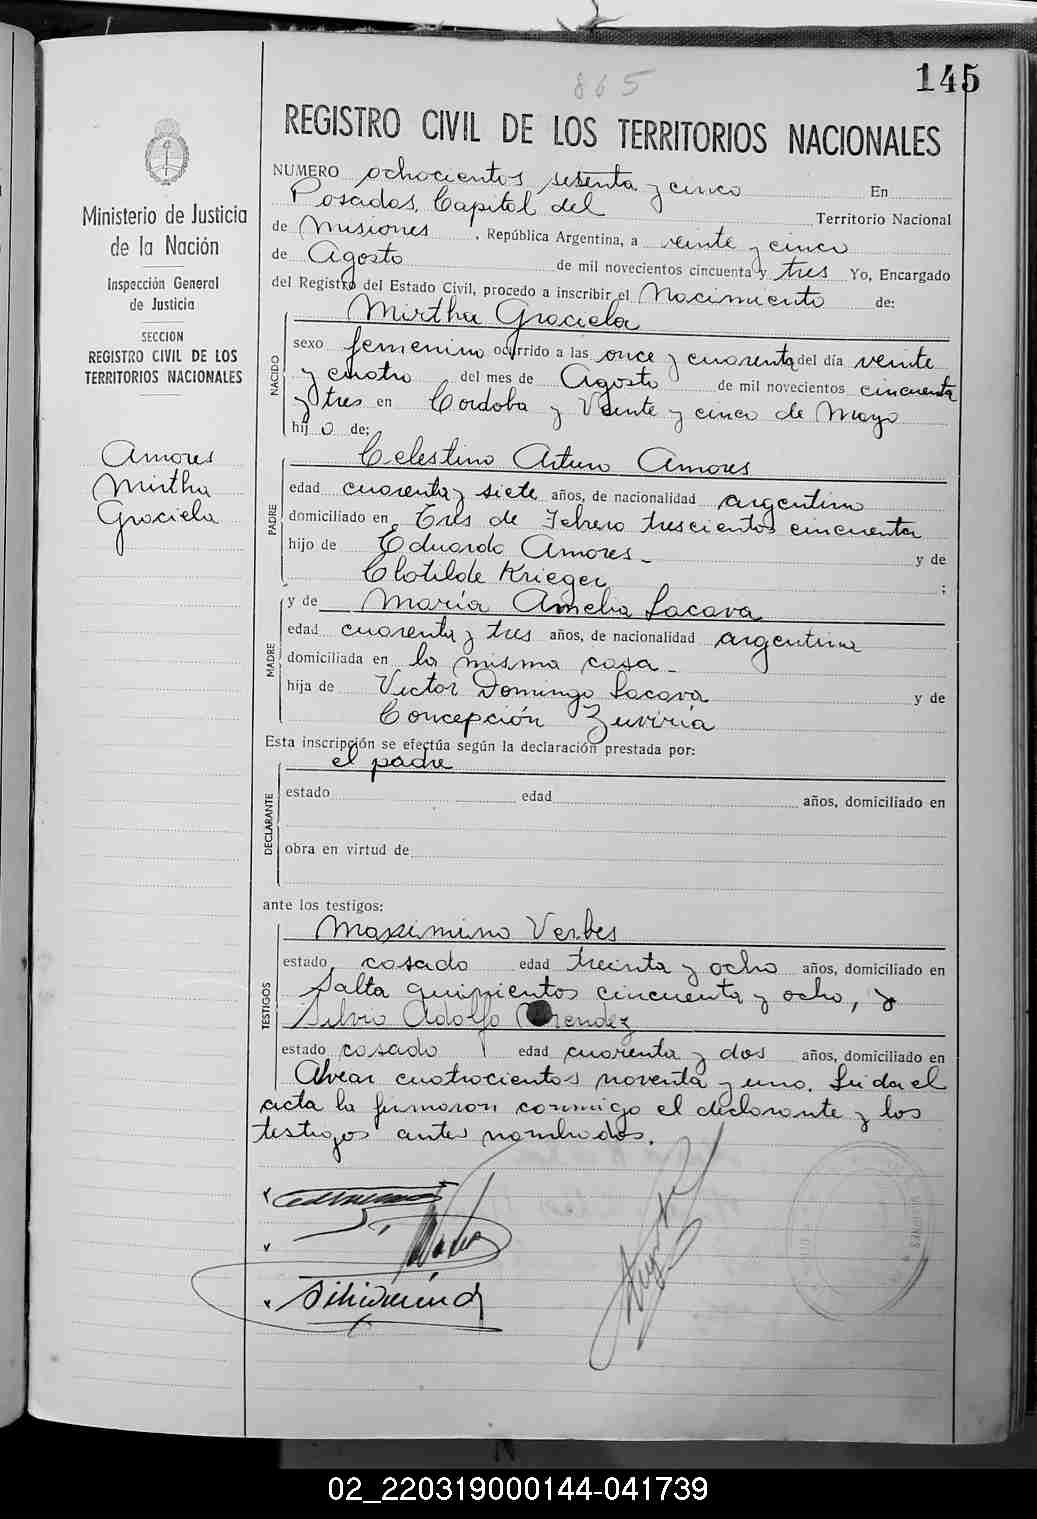 865
145
REGISTRO CIVIL DE LOS TERRITORIOS NACIONALES
NUMERO ochocientos sesenta y cinco En
Posadas, Capital del Territorio Nacional
de Misiones, República Argentina, a veinte y cinco
de Agosto de mil novecientos cincuenta y tres Yo, Encargado
del Registro del Estado Civil, procedo a inscribir el Nacimiento de:
Ministerio de Justicia
de la Nación
Inspección General
de Justicia
SECCION
REGISTRO CIVIL DE LOS
TERRITORIOS NACIONALES
Amores
Mirtha
Graciela
NACIDO
Mirtha Graciela
sexo femenino ocurrido a las once y cuarenta del día veinte
y cuatro del mes de Agosto de mil novecientos cincuenta
y tres en Cordoba y Veinte y cinco de Mayo
hij o de:
PADRE
Celestino Arturo Amores
edad cuarenta y siete años, de nacionalidad argentino
domiciliado en Tres de Febrero trescientos cincuenta
hijo de Eduardo Amores - y de
Clotilde Krieger ;
MADRE
y de María Amelia Lacava
edad cuarenta y tres años, de nacionalidad argentina
domiciliada en la misma casa -
hija de Victor Domingo Lacava y de
Concepción Zuviría
Esta inscripción se efectúa según la declaración prestada por:
el padre
DECLARANTE
estado edad años, domiciliado en
obra en virtud de
ante los testigos:
TESTIGOS
Maximino Verbes
estado casado edad treinta y ocho años, domiciliado en
Salta quinientos cincuenta y ocho, y
Silvio Adolfo Mendez
estado casado edad cuarenta y dos años, domiciliado en
Alvear cuatrocientos noventa y uno. Leida el
acta la firmaron conmigo el declarante y los
testigos antes nombrados.
MISIONES
02_220319000144-041739